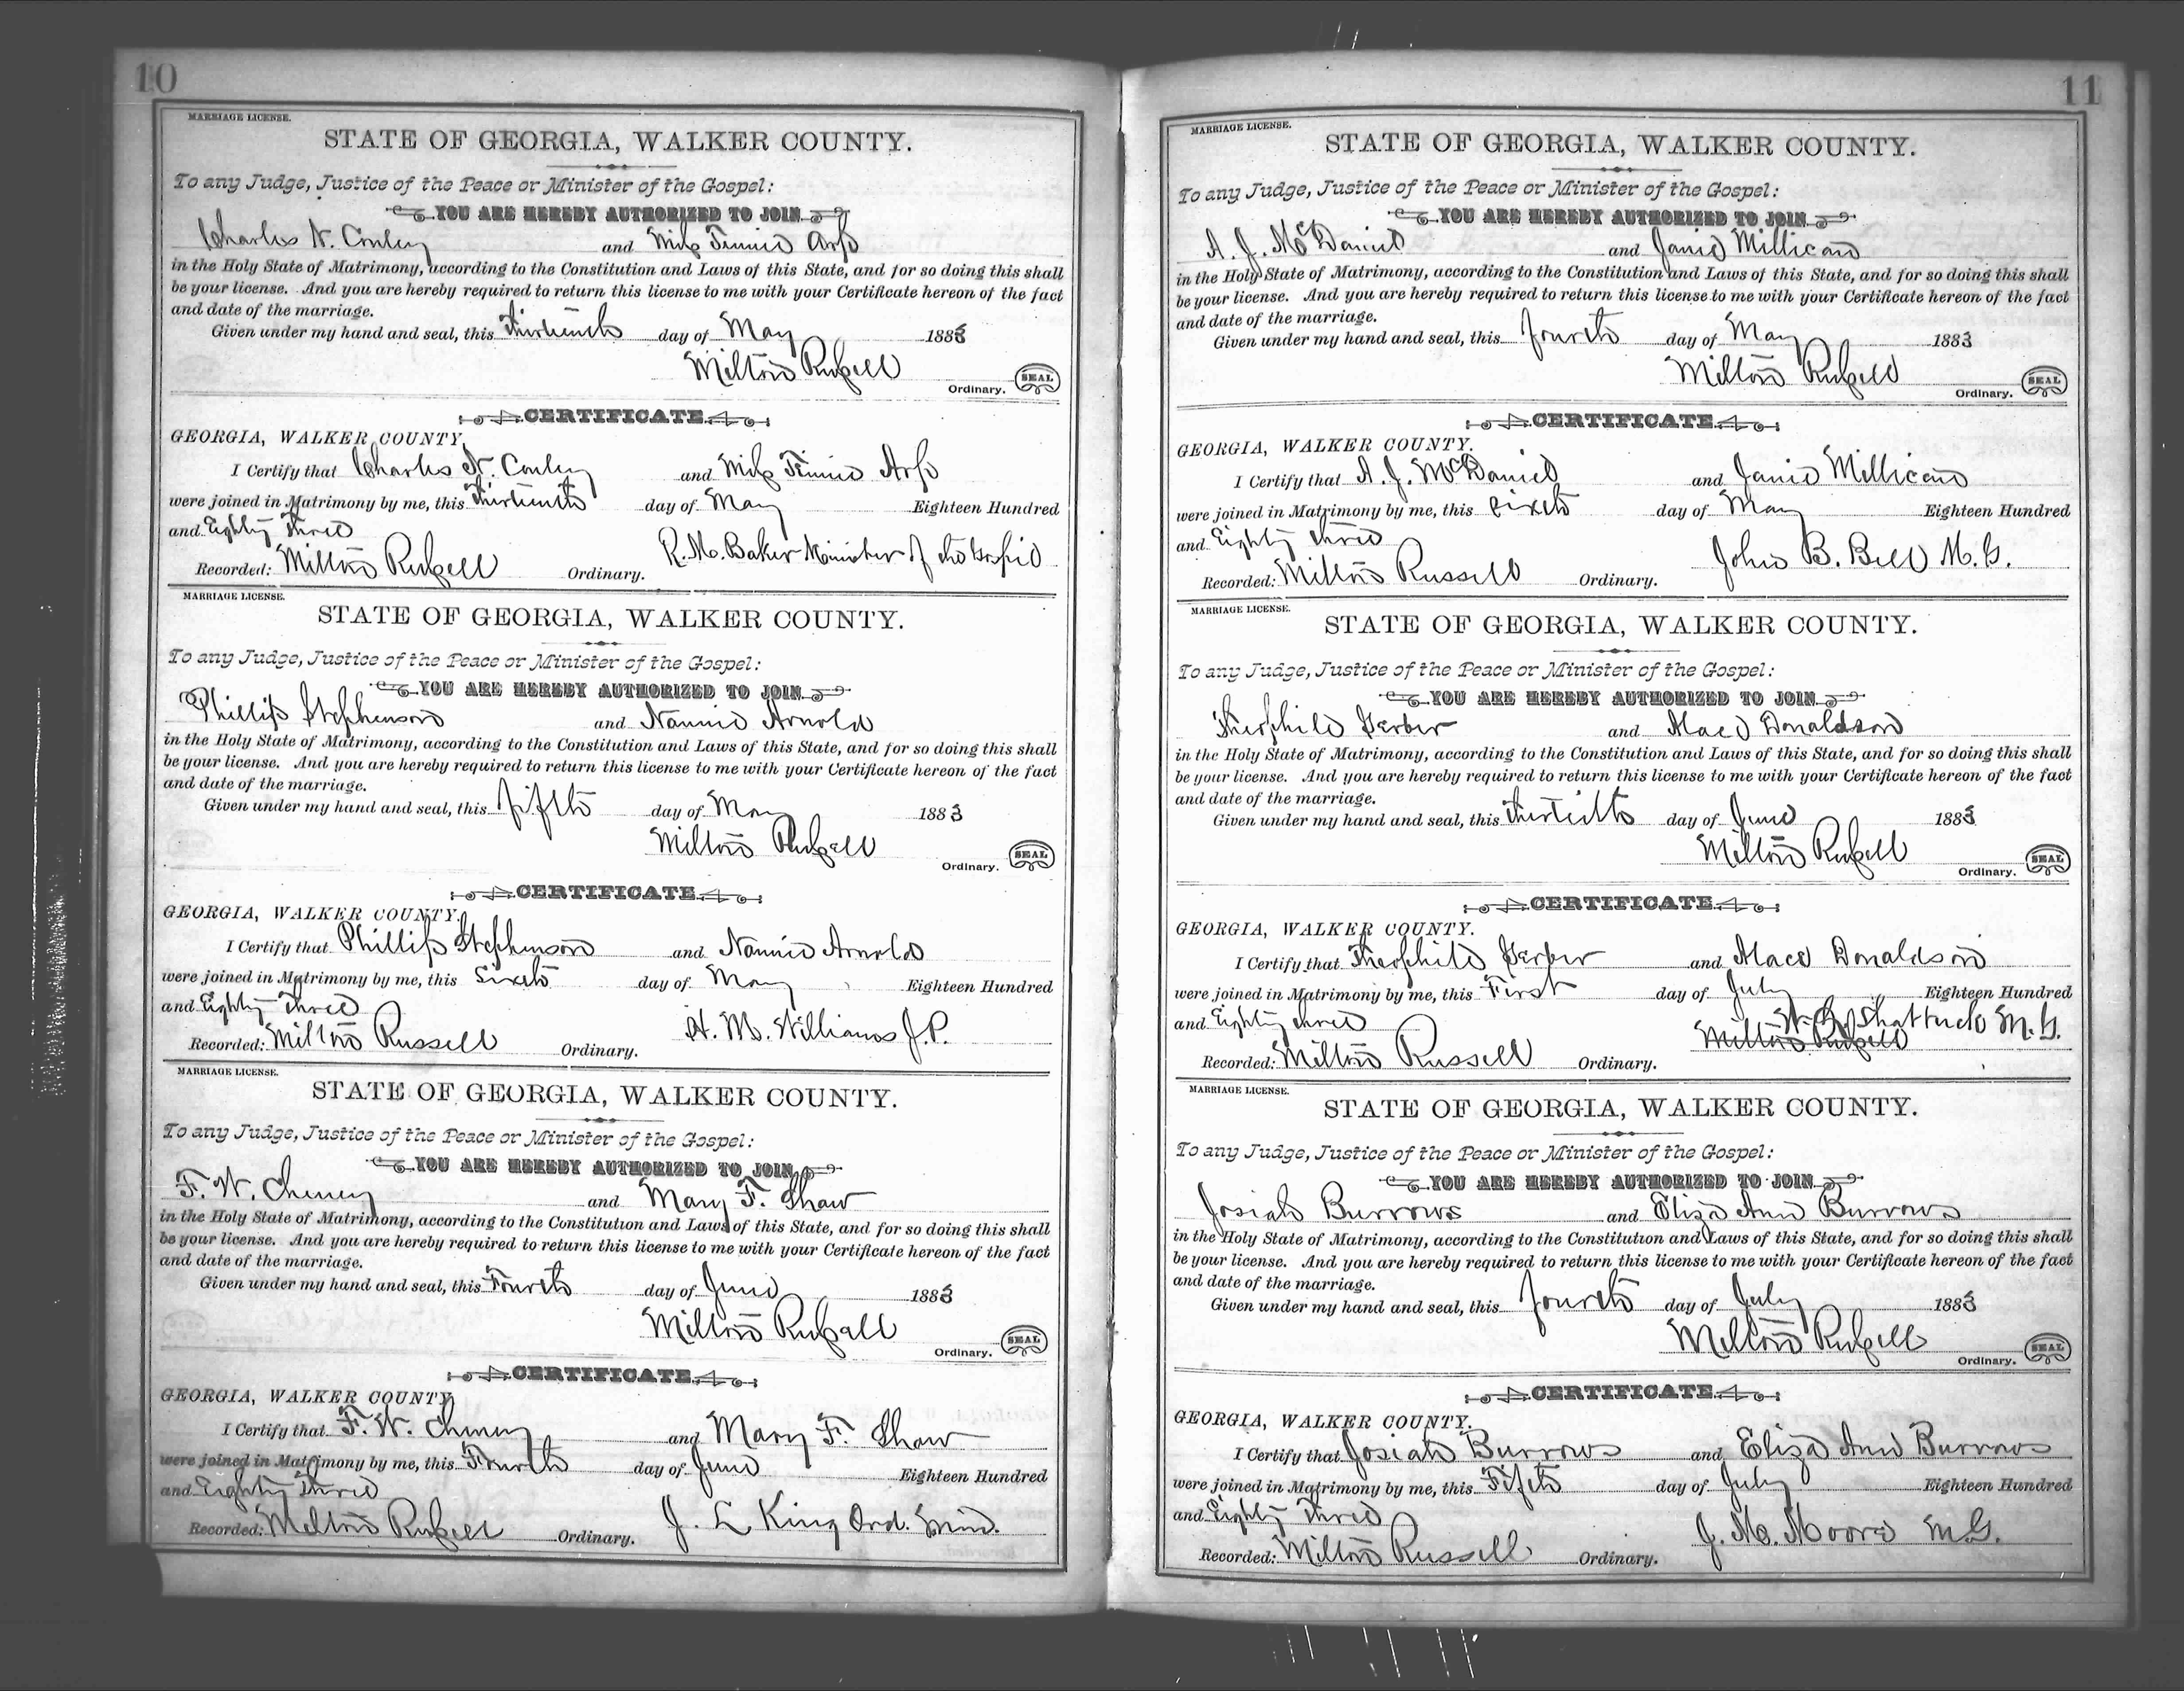 10
MARRIAGE LICENSE.
STATE OF GEORGIA, WALKER COUNTY.
To any Judge, Justice of the Peace or Minister of the Gospel:
YOU ARE HEREBY AUTHORIZED TO JOIN
Charles N. Conley and Miss Tennie Arp
in the Holy State of Matrimony, according to the Constitution and Laws of this State, and for so doing this shall
be your license. And you are hereby required to return this license to me with your Certificate hereon of the fact
and date of the marriage.
Given under my hand and seal, this Thirteenth day of May 1883
Milton Russell
Ordinary. SEAL
CERTIFICATE
GEORGIA, WALKER COUNTY.
I Certify that Charles N. Conley and Miss Tennie Arp
were joined in Matrimony by me, this Thirteenth day of May Eighteen Hundred
and Eighty Three
R. M. Baker Minister of the Gospel
Recorded: Milton Russell Ordinary.
MARRIAGE LICENSE.
STATE OF GEORGIA, WALKER COUNTY.
To any Judge, Justice of the Peace or Minister of the Gospel:
YOU ARE HEREBY AUTHORIZED TO JOIN
Phillip Stephenson and Nannie Arnold
in the Holy State of Matrimony, according to the Constitution and Laws of this State, and for so doing this shall
be your license. And you are hereby required to return this license to me with your Certificate hereon of the fact
and date of the marriage.
Given under my hand and seal, this fifth day of May 1883
Milton Russell
Ordinary. SEAL
CERTIFICATE
GEORGIA, WALKER COUNTY.
I Certify that Phillip Stephenson and Nannie Arnold
were joined in Matrimony by me, this Sixth day of May Eighteen Hundred
and Eighty Three
H. M. Williams J.P.
Recorded: Milton Russell Ordinary.
MARRIAGE LICENSE.
STATE OF GEORGIA, WALKER COUNTY.
To any Judge, Justice of the Peace or Minister of the Gospel:
YOU ARE HEREBY AUTHORIZED TO JOIN
F. W. Cheney and Mary F. Shaw
in the Holy State of Matrimony, according to the Constitution and Laws of this State, and for so doing this shall
be your license. And you are hereby required to return this license to me with your Certificate hereon of the fact
and date of the marriage.
Given under my hand and seal, this Fourth day of June 1883
Milton Russell
Ordinary. SEAL
CERTIFICATE
GEORGIA, WALKER COUNTY
I Certify that F. W. Cheney and Mary F. Shaw
were joined in Matrimony by me, this Fourth day of June Eighteen Hundred
and Eighty Three
Recorded: Milton Russell Ordinary. J. L King Ord. Min.
11
MARRIAGE LICENSE.
STATE OF GEORGIA, WALKER COUNTY.
To any Judge, Justice of the Peace or Minister of the Gospel:
YOU ARE HEREBY AUTHORIZED TO JOIN
A. J. McDaniel and Janie Millican
in the Holy State of Matrimony, according to the Constitution and Laws of this State, and for so doing this shall
be your license. And you are hereby required to return this license to me with your Certificate hereon of the fact
and date of the marriage.
Given under my hand and seal, this fourth day of May 1883
Milton Russell
Ordinary. SEAL
CERTIFICATE
GEORGIA, WALKER COUNTY.
I Certify that A. J. McDaniel and Janie Millican
were joined in Matrimony by me, this Sixth day of May Eighteen Hundred
and Eighty three
John B. Bell M.G.
Recorded: Milton Russell Ordinary.
MARRIAGE LICENSE.
STATE OF GEORGIA, WALKER COUNTY.
To any Judge, Justice of the Peace or Minister of the Gospel:
YOU ARE HEREBY AUTHORIZED TO JOIN
Theophile Gerber and Alace Donaldson
in the Holy State of Matrimony, according to the Constitution and Laws of this State, and for so doing this shall
be your license. And you are hereby required to return this license to me with your Certificate hereon of the fact
and date of the marriage.
Given under my hand and seal, this Thirtieth day of June 1883
Milton Russell
Ordinary. SEAL
CERTIFICATE
GEORGIA, WALKER COUNTY.
I Certify that Theophile Gerber and Alace Donaldson
were joined in Matrimony by me, this First day of July Eighteen Hundred
and Eighty three
Shattuck M.G.
Milton Russell
Recorded: Milton Russell Ordinary.
MARRIAGE LICENSE.
STATE OF GEORGIA, WALKER COUNTY.
To any Judge, Justice of the Peace or Minister of the Gospel:
YOU ARE HEREBY AUTHORIZED TO JOIN
Josiah Burrows and Eliza Ann Burrows
in the Holy State of Matrimony, according to the Constitution and Laws of this State, and for so doing this shall
be your license. And you are hereby required to return this license to me with your Certificate hereon of the fact
and date of the marriage.
Given under my hand and seal, this fourth day of July 1883
Milton Russell
Ordinary. SEAL
CERTIFICATE
GEORGIA, WALKER COUNTY.
I Certify that Josiah Burrows and Eliza Ann Burrows
were joined in Matrimony by me, this Fifth day of July Eighteen Hundred
and Eighty Three
J. M. Moore M.G.
Recorded: Milton Russell Ordinary.